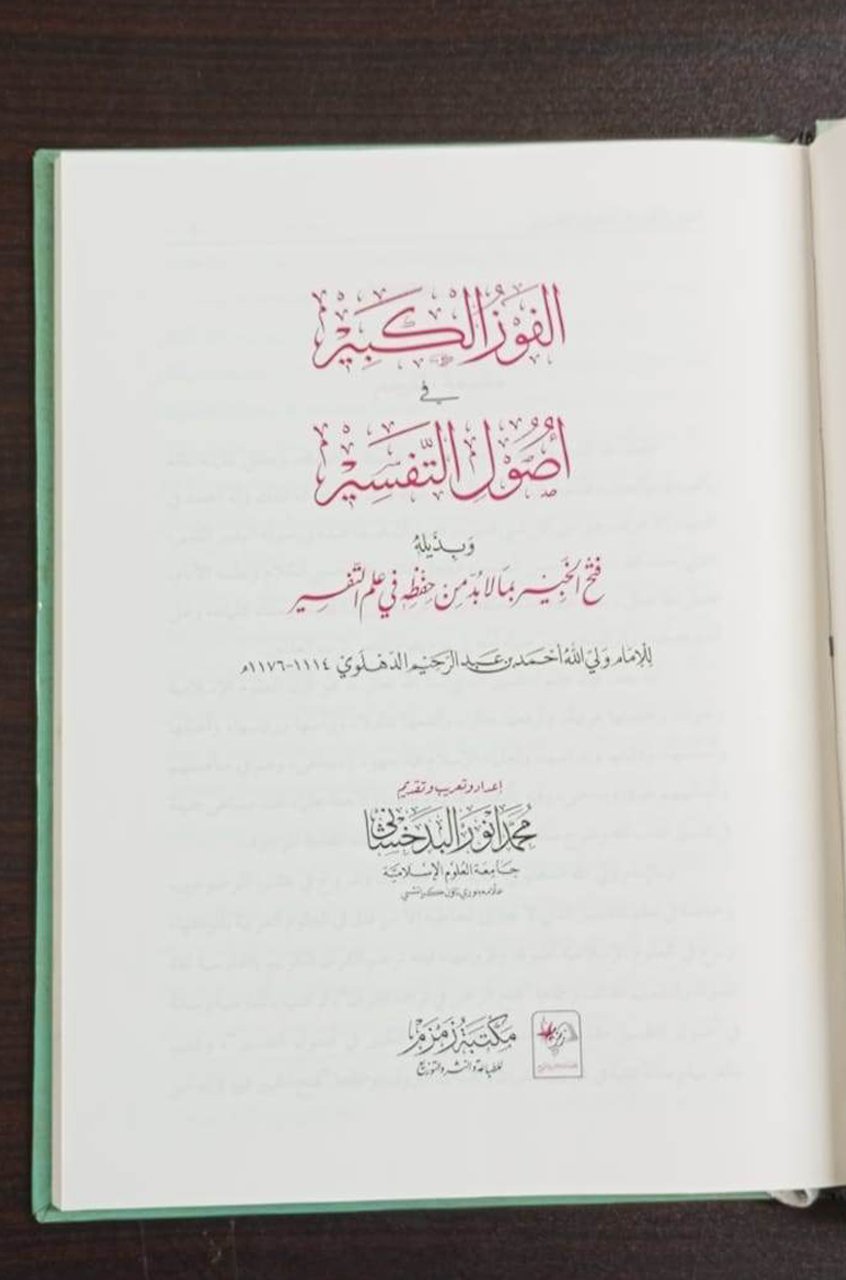 الفَوْزُ الْكَبِيْر
في
أُصُوْلِ التَّفْسِيْر
وَبِذَيْلِهِ
فَتْحُ الْخَبِيْر بِمَا لَابُدَّ مِنْ حِفْظِهِ فِي عِلْمِ التَّفْسِيْر
لِلْإِمَام وَلِيِّ اللّٰه أَحْمَد بن عَبد الرَّحِيْم الدِّهْلَوِيّ ١١١٤-١١٧٦ه
إعداد وتعريب وتقديم
مُحَمَّد أَنْوَر الْبَدَخْشَانِيّ
جَامِعَة العُلُوْم الإِسْلَامِيَّة
علامه بنوري تاؤن كراتشي
مَكْتَبَة زَمْزَم
للطباعة والنشر والتوزيع